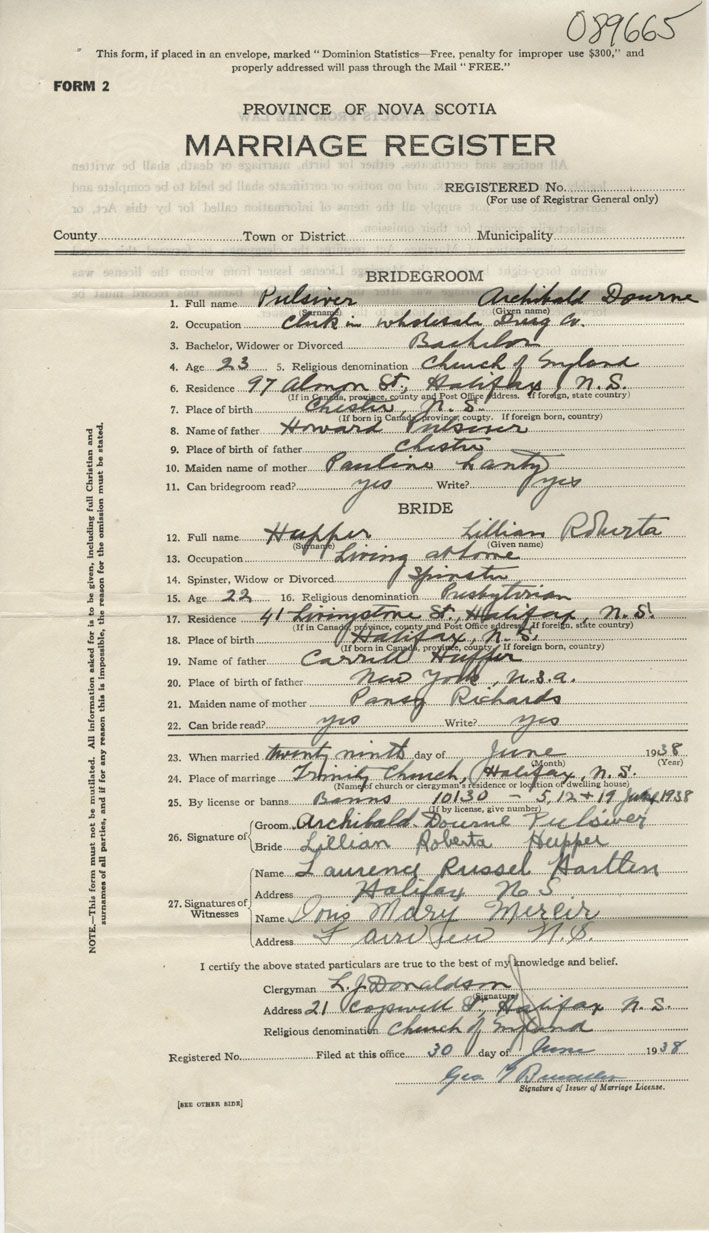 089665
This form, if placed in an envelope, marked "Dominion Statistics—Free, penalty for improper use $300," and
properly addressed will pass through the Mail "FREE."
FORM 2
PROVINCE OF NOVA SCOTIA
MARRIAGE REGISTER
REGISTERED No.
(For use of Registrar General only)
County Town or District Municipality
BRIDEGROOM
1. Full name Pulsiver Archibald Dourne
(Surname) (Given name)
2. Occupation Clerk in wholesale Drug Co.
3. Bachelor, Widower or Divorced Bachelor
4. Age 23 5. Religious denomination Church of England
6. Residence 97 Almon St., Halifax, N.S.
(If in Canada, province, county and Post Office address. If foreign, state country)
7. Place of birth Chester, N.S.
(If born in Canada, province, county. If foreign born, country)
8. Name of father Howard Pulsiver
9. Place of birth of father Chester
10. Maiden name of mother Pauline
11. Can bridegroom read? yes Write? yes
BRIDE
12. Full name Hupper Lillian Roberta
(Surname) (Given name)
13. Occupation Living at home
14. Spinster, Widow or Divorced Spinster
15. Age 22 16. Religious denomination Presbyterian
17. Residence 41 Livingstone St., Halifax, N.S.
(If in Canada, province, county and Post Office address. If foreign, state country)
18. Place of birth Halifax, N.S.
(If born in Canada, province, county. If foreign born, country)
19. Name of father Carrill Hupper
20. Place of birth of father New York, U.S.A.
21. Maiden name of mother Pansy Richards
22. Can bride read? yes Write? yes
23. When married twenty ninth day of June 1938
(Month) (Year)
24. Place of marriage Trinity Church, Halifax, N.S.
(Name of church or clergyman's residence or location of dwelling house)
25. By license or banns Banns 10130 – 5, 12 + 19 1938
(If by license, give number)
26. Signature of Groom Archibald Dourne Pulsiver
Bride Lillian Roberta Hupper
27. Signatures of Witnesses Name Laurence Russel Hartlen
Address Halifax N S
Name Doris Mary Mercer
Address Fairview N.S.
I certify the above stated particulars are true to the best of my knowledge and belief.
Clergyman L. J. Donaldson
(Signature)
Address 21 Cogswell St, Halifax N.S.
Religious denomination Church of England
Registered No. Filed at this office 30 day of June 1938
Geo
Signature of Issuer of Marriage License.
[SEE OTHER SIDE]
NOTE.—This form must not be mutilated. All information asked for is to be given, including full Christian and
surnames of all parties, and if for any reason this is impossible, the reason for the omission must be stated.